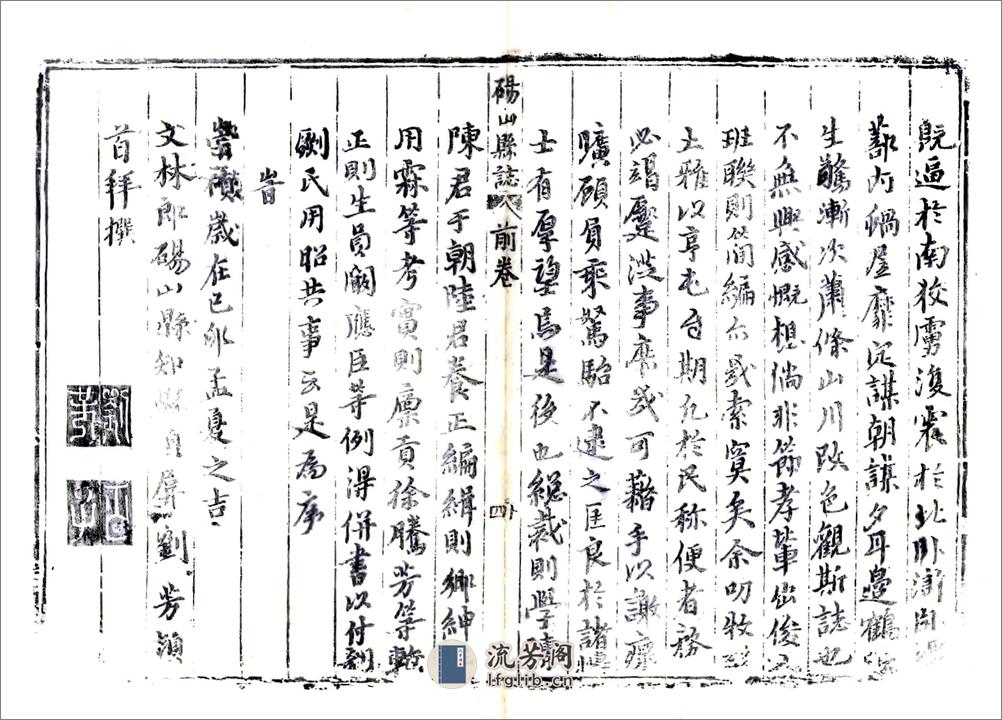 既逼於南狡虜復窺於北卧
蝸屋靡定謀朝謀夕耳邊鶴
生驚漸次蕭條山川改色觀斯誌也
不無興感慨想倘非節孝輩出俊
班聯則簡編亦幾索寞矣余叨牧
土雅以亨屯自期凡於民称便者務
必竭蹙從事庶或可藉手以謝瘝
曠顧負乘駑駘不逮之匡良於諸
士有厚望焉是後也総裁則學
碭山縣誌 前卷
陳君于朝陸君養正編緝則鄉紳
用霖等考實則廪貢徐騰芳等
正則生員闞應臣等例得併書以付剞
劂氏用昭共事云是為序
旹
崇禎歲在己卯孟夏之吉
文林郎碭山縣知縣 劉芳
首拜撰
流芳阁
lfglib.cn